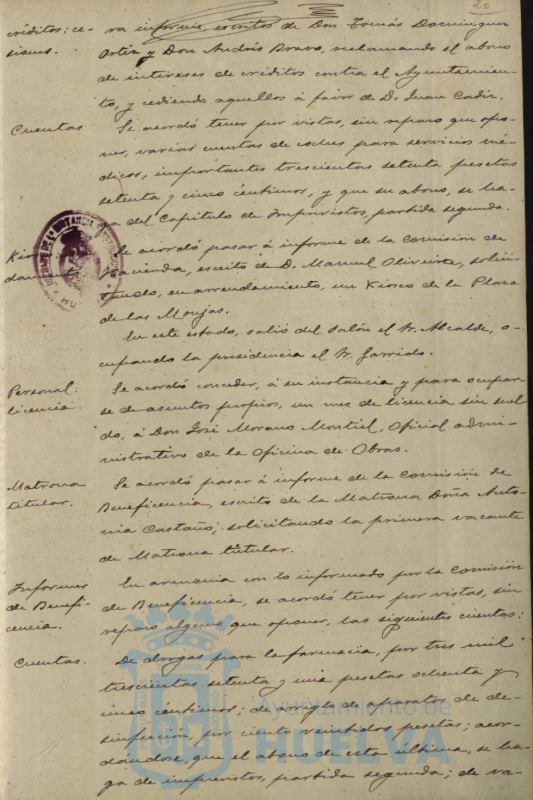 20
créditos: ce- ra informe, escritos de Don Tomás Dominguez
siones. Ortiz y Don Andrés Bravo, reclamando el abono
de intereses de créditos contra el Ayuntamien-
to, y cediendo aquellos á favor de D. Juan Cadiz.
Cuentas Se acordó tener por vistas, sin reparo que opo-
ner, varias cuentas de coches para servicios mé-
dicos, importantes trescientas setenta pesetas
setenta y cinco céntimos, y que su abono, se ha-
ga del Capitulo de Imprevistos, partida segunda.
Se acordó pasar á informe de la Comisión de
Hacienda, escrito de D. Manuel Oliveira, solici-
tando, en arrendamiento, un Kiosco de la Plaza
de las Monjas.
En este estado, salió del salón el Sr. Alcalde, o-
cupando la presidencia el Sr. Garrido.
Personal: Se acordó conceder, á su instancia y para ocupar-
licencia. se de asuntos propios, un mes de licencia sin suel-
do, á Don José Moreno Montiel, Oficial admi-
nistrativo de la Oficina de Obras.
Matrona Se acordó pasar á informe de la Comisión de
titular. Beneficencia, escrito de la Matrona Doña Anto-
nia Castaño; solicitando la primera vacante
de Matrona titular.
Informes En armonia con lo informado por la Comisión
de Benefi- de Beneficencia, se acordó tener por vistas, sin
cencia. reparo alguno que oponer, las siguientes cuentas:
Cuentas. De drogas para la farmacia, por tres mil
trescientas setenta y una pesetas ochenta y
cinco céntimos; de arreglo de aparato de de-
sinfección, por ciento veintidos pesetas; acor-
dándose, que el abono de esta última, se ha-
ga de imprevistos, partida segunda; de va-
Ayuntamiento de
HUELVA